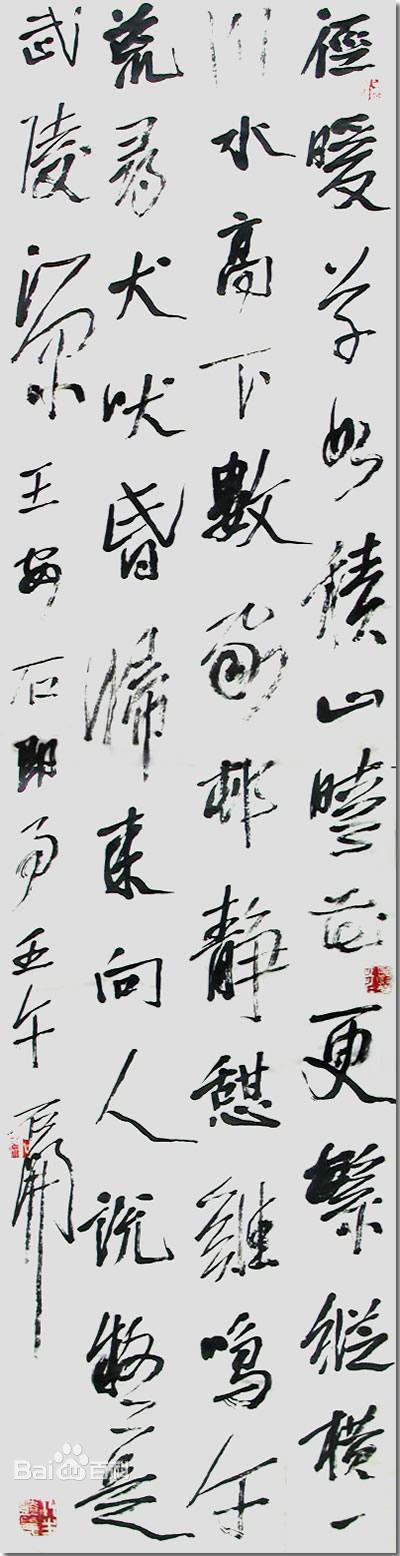 徑暖草如積山晴花更繁縱橫一
川水高下數家邨靜憩雞鳴午
荒尋犬吠昏歸來向人說疑是
武陵源 王安石即事壬午 石開
Bai百科